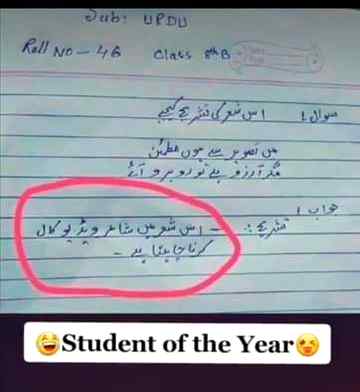 Sub: URDU
Roll No - 46 Class 8th B
سوال 1 اس شعر کی تشریح کیجیے
میں تصویر سے ہوں مطمئن
مگر آرزو ہے تو روبرو آئے
جواب 1
تشریح :- اس شعر میں شاعر ویڈیو کال
کرنا چاہتا ہے -
😂Student of the Year😜